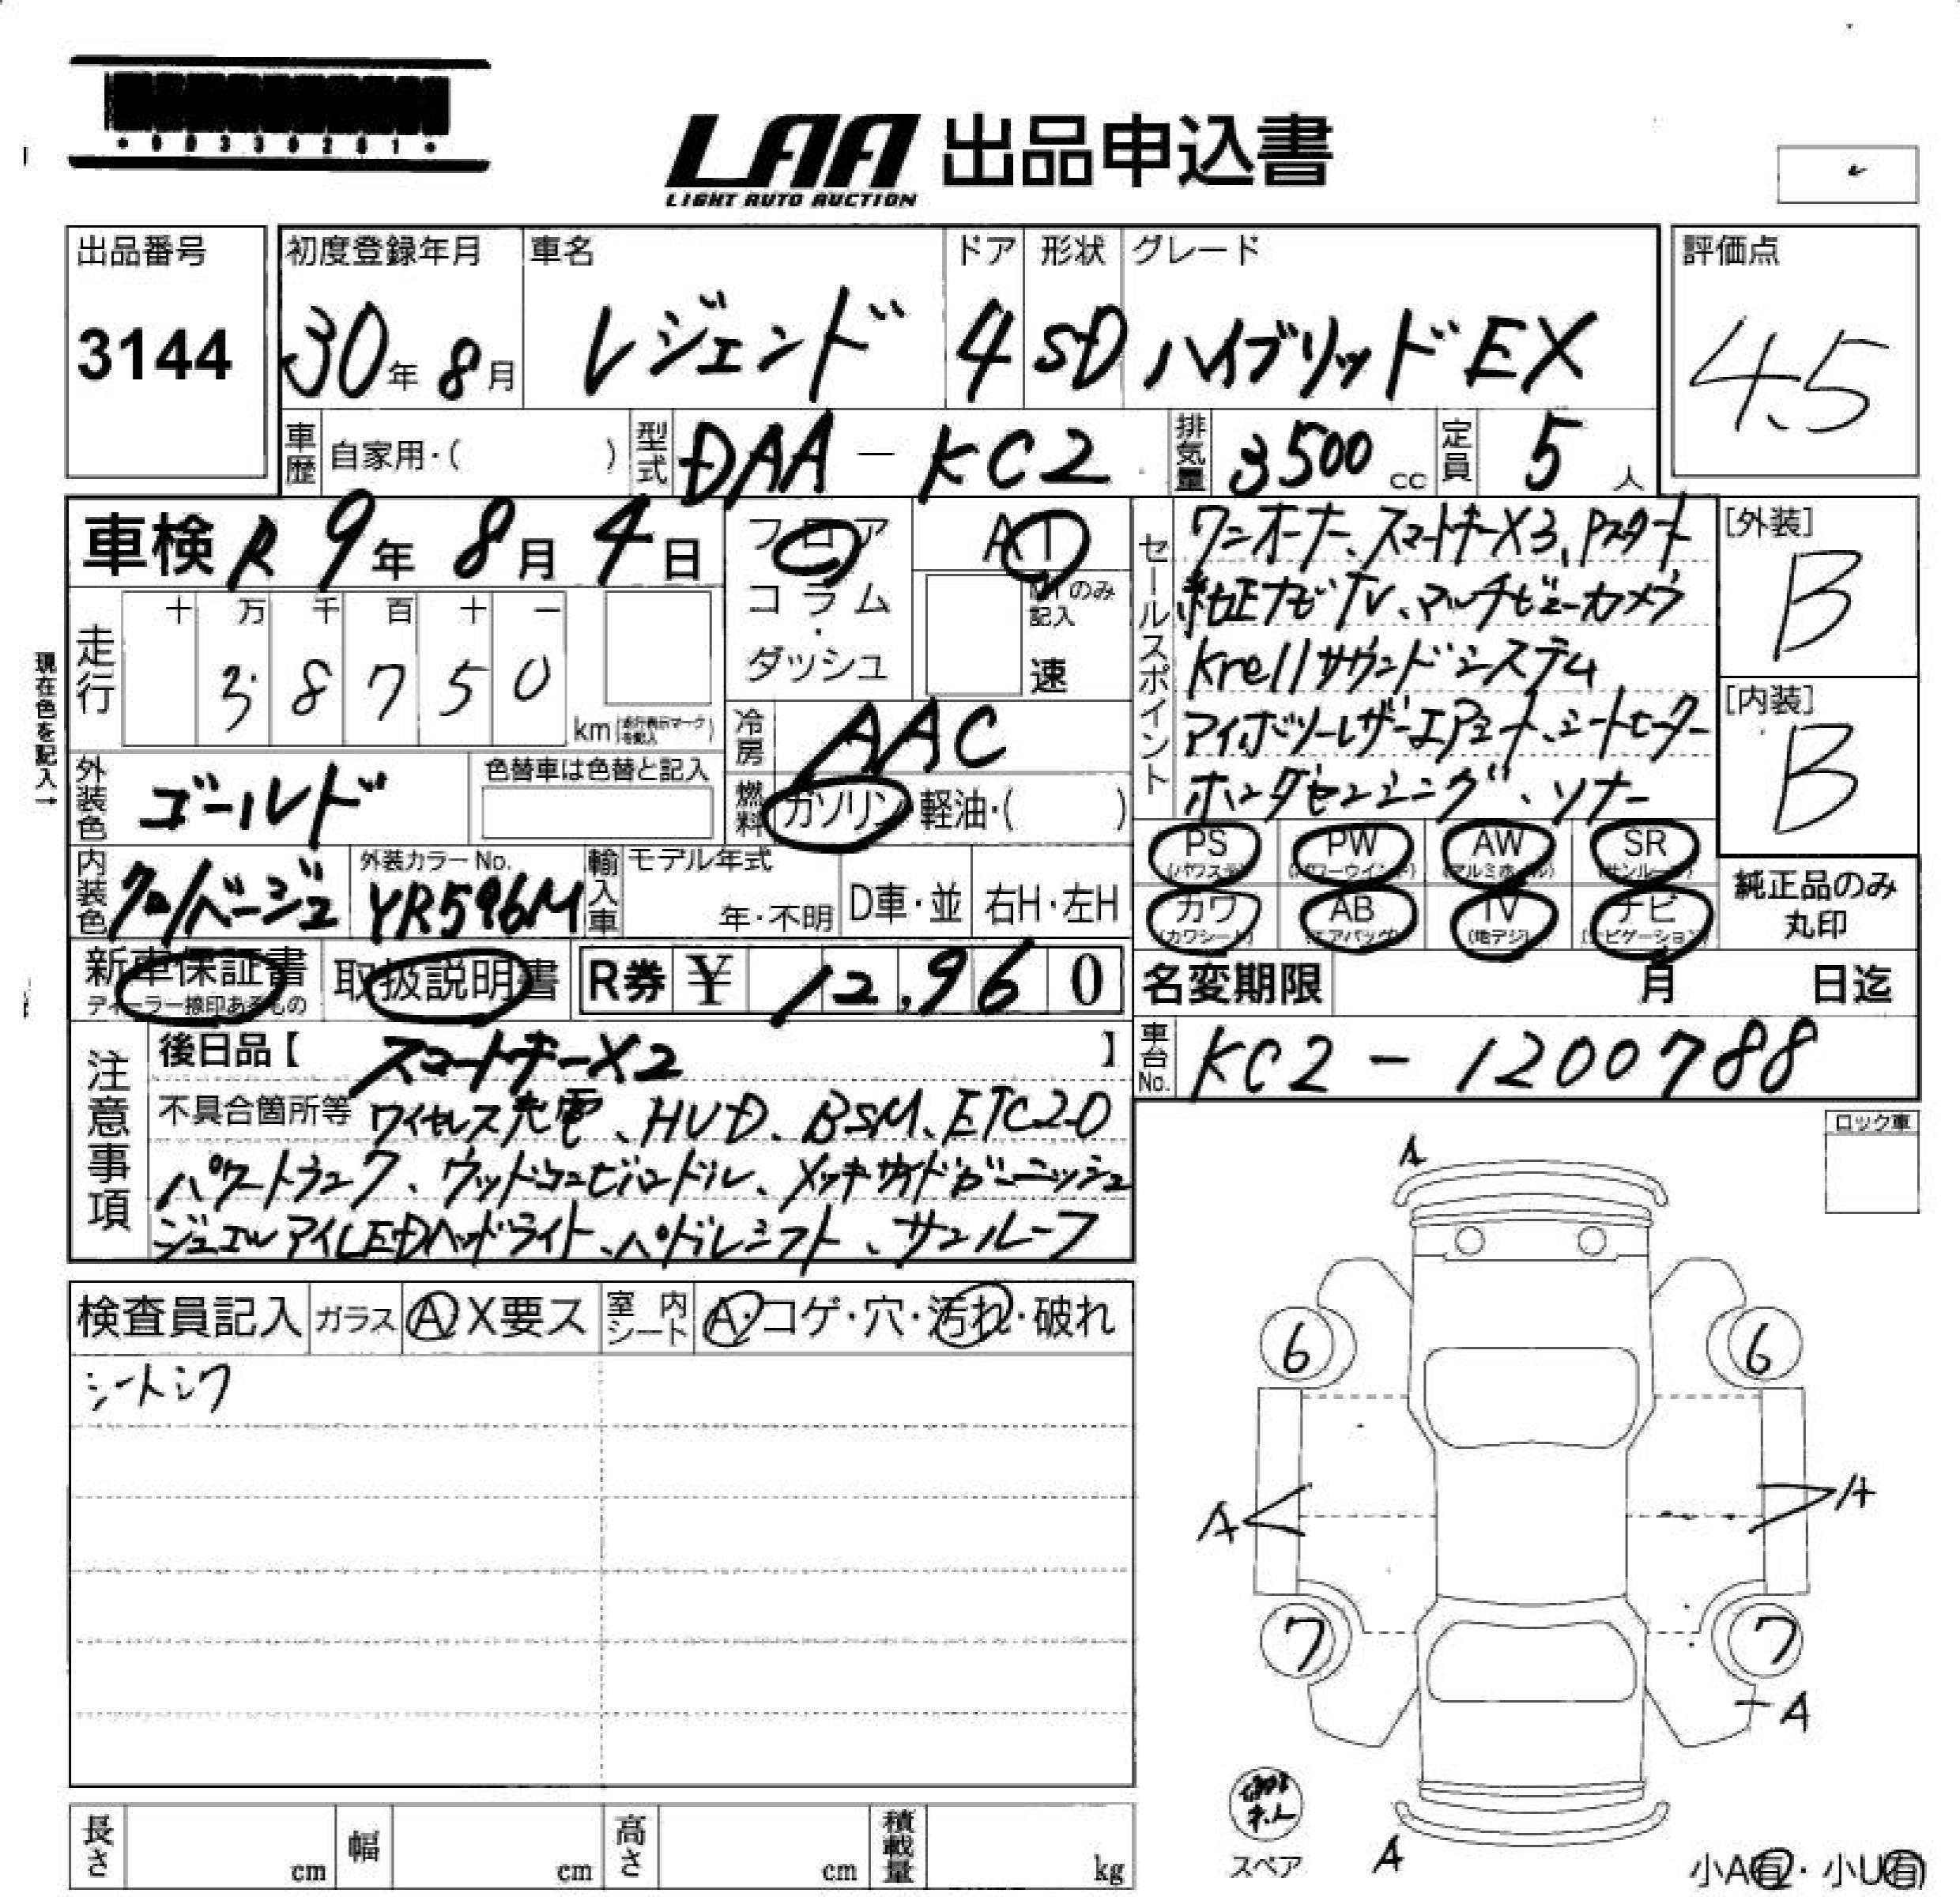 00330281
LAA 出品申込書
LIGHT AUTO AUCTION
出品番号 初度登録年月 車名 ドア 形状 グレード 評価点
3144 30年 8月 レジェンド 4 SD ハイブリッドEX 4.5
車歴 自家用・( ) 型式 DAA - KC2 排気量 3500 cc 定員 5 人
車検 R 9年 8月 4日 フロア AT
コラム・ダッシュ MTのみ記入 速
セールスポイント ワンオーナー、スマートキーX3、Pスタート
純正ナビTV、マルチビューカメラ
Krellサウンドシステム
アイボリーレザーエアシート、シートヒーター
ホンダセンシング、ソナー
[外装] B
[内装] B
現在色を記入→
走行 十 万 千 百 十 一
3 8 7 5 0 km (走行表示マークを記入)
冷房 AAC
外装色 ゴールド 色替車は色替と記入 燃料 ガソリン・軽油・( )
PS PW AW SR
(パワステ) (パワーウインド) (アルミホイル) (サンルーフ)
カワ AB TV ナビ
(カワシート) (エアバッグ) (地デジ) (ナビゲーション)
純正品のみ丸印
内装色 クロ/ベージュ 外装カラーNo. YR596M 輸入車 モデル年式 年・不明 D車・並 右H・左H
新車保証書 取扱説明書 R券 ¥ 12,960 名変期限 月 日迄
ディーラー捺印あるもの
車台No. KC2 - 1200788
注意事項 後日品【 スマートキーX2 】
不具合箇所等 ワイヤレス充電、HUD、BSM、ETC2.0
パワートランク、ウッドコンビハンドル、メッキサイドガーニッシュ
ジュエルアイLEDヘッドライト、パドルシフト、サンルーフ
ロック車
検査員記入 ガラス A・X要ス 室内シート A・コゲ・穴・汚れ・破れ
シートシワ
A
6 6
A A
7 7
A
A
スペア
小A有・小U有
長さ cm 幅 cm 高さ cm 積載量 kg